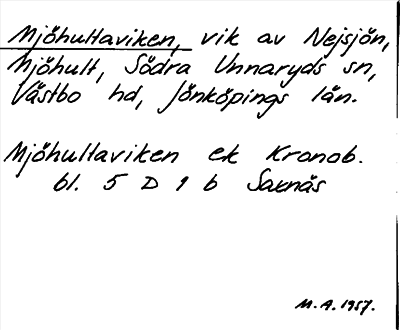 Mjöhultaviken, vik av Nejsjön,
Mjöhult, Södra Unnaryds sn,
Västbo hd, Jönköpings län.
Mjöhultaviken ek Kronob.
bl. 5 D 9 b Saxnäs
M.A. 1957.